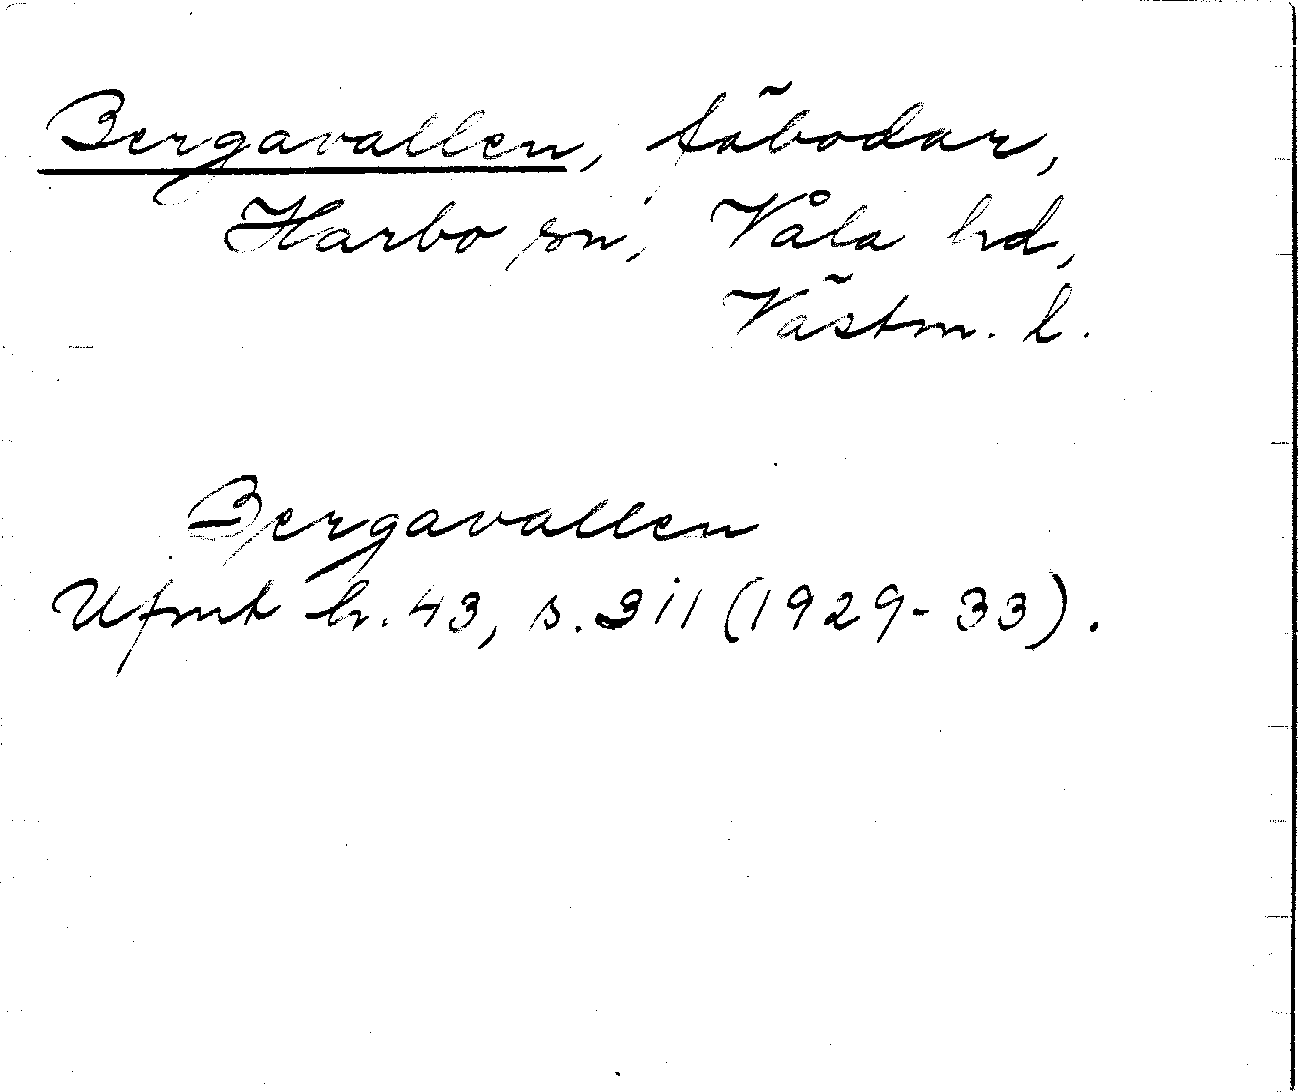 Bergavallen, fäbodar,
Harbo sn, Våla hd,
Västm. l.
Bergavallen
Ufmt h. 43, s. 311 (1929-33).